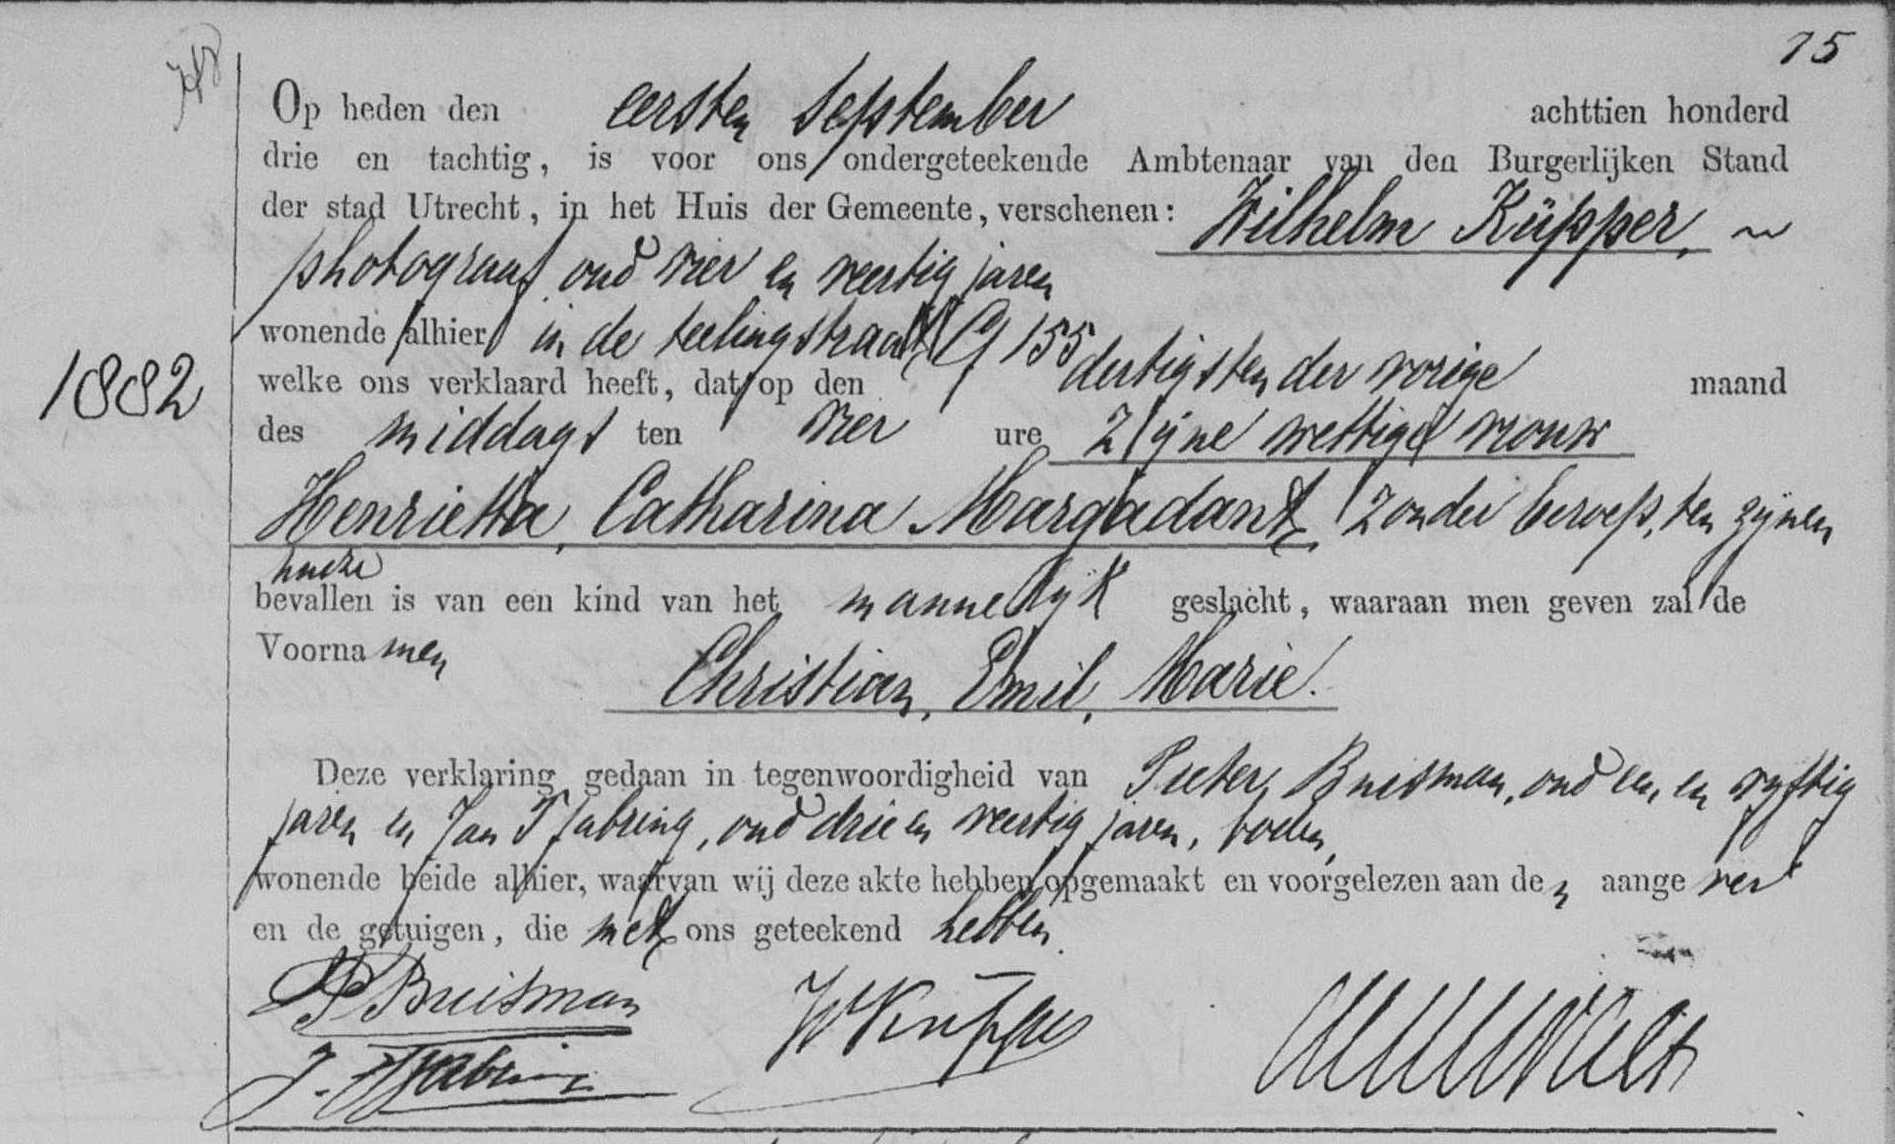 75
Op heden den eersten September achttien honderd
drie en tachtig, is voor ons ondergeteekende Ambtenaar van den Burgerlijken Stand
der stad Utrecht, in het Huis der Gemeente, verschenen: Wilhelm Küpper,
photograaf, oud vier en veertig jaren
wonende alhier in de teelingstraat G 155
1882
welke ons verklaard heeft, dat op den dertigsten der vorige maand
des middags ten vier ure zijne wettige vrouw
Henrietta, Catharina Margadant, zonder beroep, ten zijnen
huize
bevallen is van een kind van het mannelijk geslacht, waaraan men geven zal de
Voornamen
Christian, Emil, Marie.
Deze verklaring gedaan in tegenwoordigheid van Pieter Buisman, oud een en vyftig
jaren en Jan Tjabring, oud drie en veertig jaren, boden,
wonende beide alhier, waarvan wij deze akte hebben opgemaakt en voorgelezen aan den aangever
en de getuigen, die met ons geteekend hebben.
P Buisman
W Küpper
J. Tjabring